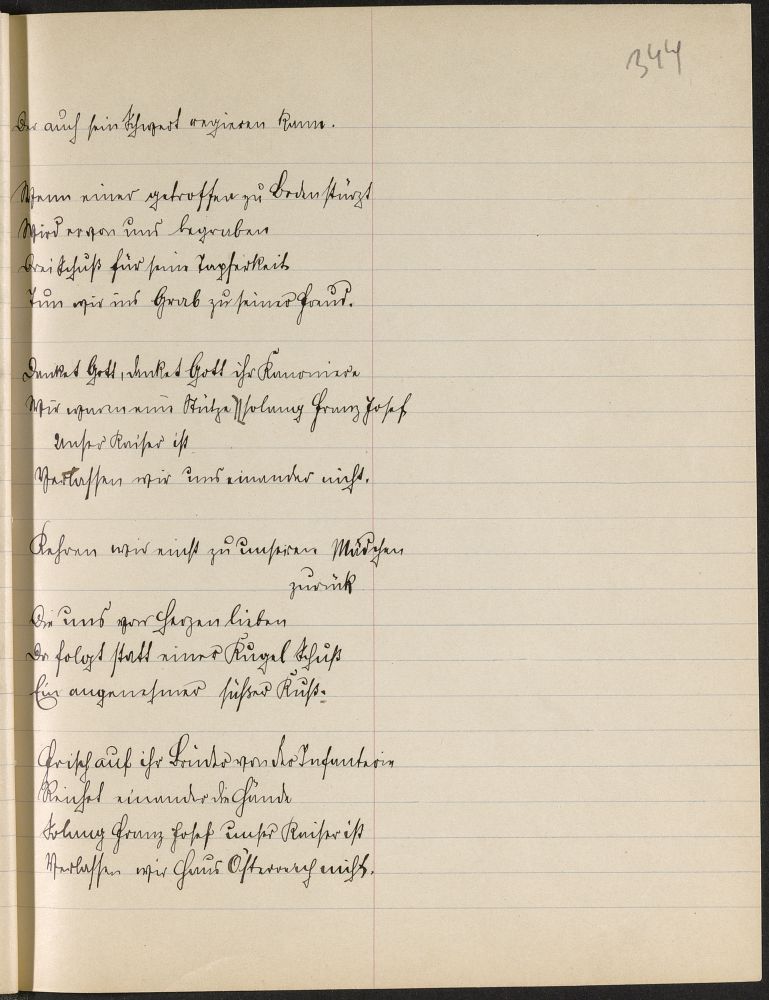 344
Der auch sein Schwert regieren kann.
Wenn einer getroffen zu Boden stürzt
Wird er von uns begraben
Drei Schuß für seine Tapferkeit
Tun wir ins Grab zu seiner Freud.
Danket Gott, danket Gott ihr Kanoniere
Wir waren eine Stütze solang Franz Josef
Unser Kaiser ist
Verlassen wir uns einander nicht.
Kehren wir einst zu unseren Mädchen
zurück
Die uns von Herzen lieben
Da folgt statt einer Kugel Schuß
Ein angenehmer süßer Kuß.
Frisch auf ihr Brüder von der Infanterie
Reichet einander die Hände
Solang Franz Josef unser Kaiser ist
Verlassen wir Haus Österreich nicht.